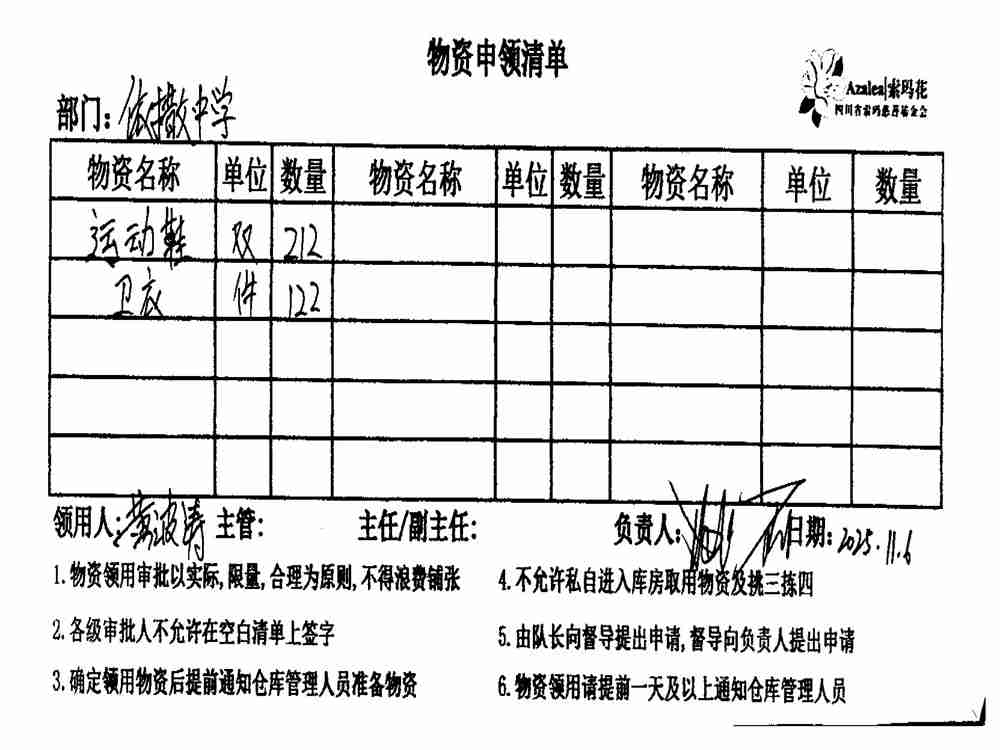 物资申领清单
Azalea|索玛花
四川省索玛慈善基金会
部门：依撒中学
物资名称 单位 数量 物资名称 单位 数量 物资名称 单位 数量
运动鞋 双 212
卫衣 件 122
领用人：黄波涛 主管： 主任/副主任： 负责人： 日期：2025.11.6
1.物资领用审批以实际,限量,合理为原则,不得浪费铺张
2.各级审批人不允许在空白清单上签字
3.确定领用物资后提前通知仓库管理人员准备物资
4.不允许私自进入库房取用物资及挑三拣四
5.由队长向督导提出申请,督导向负责人提出申请
6.物资领用请提前一天及以上通知仓库管理人员